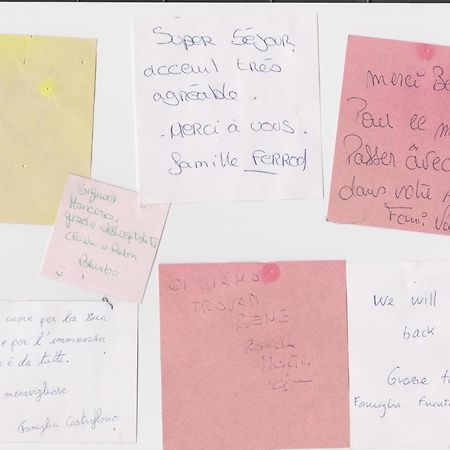 Super Séjour,
acceuil très
agréable.
Merci à vous.
famille FERROD
merci Be
Pour ce m
Passer avec
dans votre
Fami Va
Signor
Mancuso,
grazie dell'ospitalità
e Ruben
Palumbo
cuore per la sua
e per l'immensa
è da tutti.
meravigliose
Famiglia Castroflorio
CI SIAMO
TROVATI
BENE
We will
back
Grazie
Famiglia Fuent